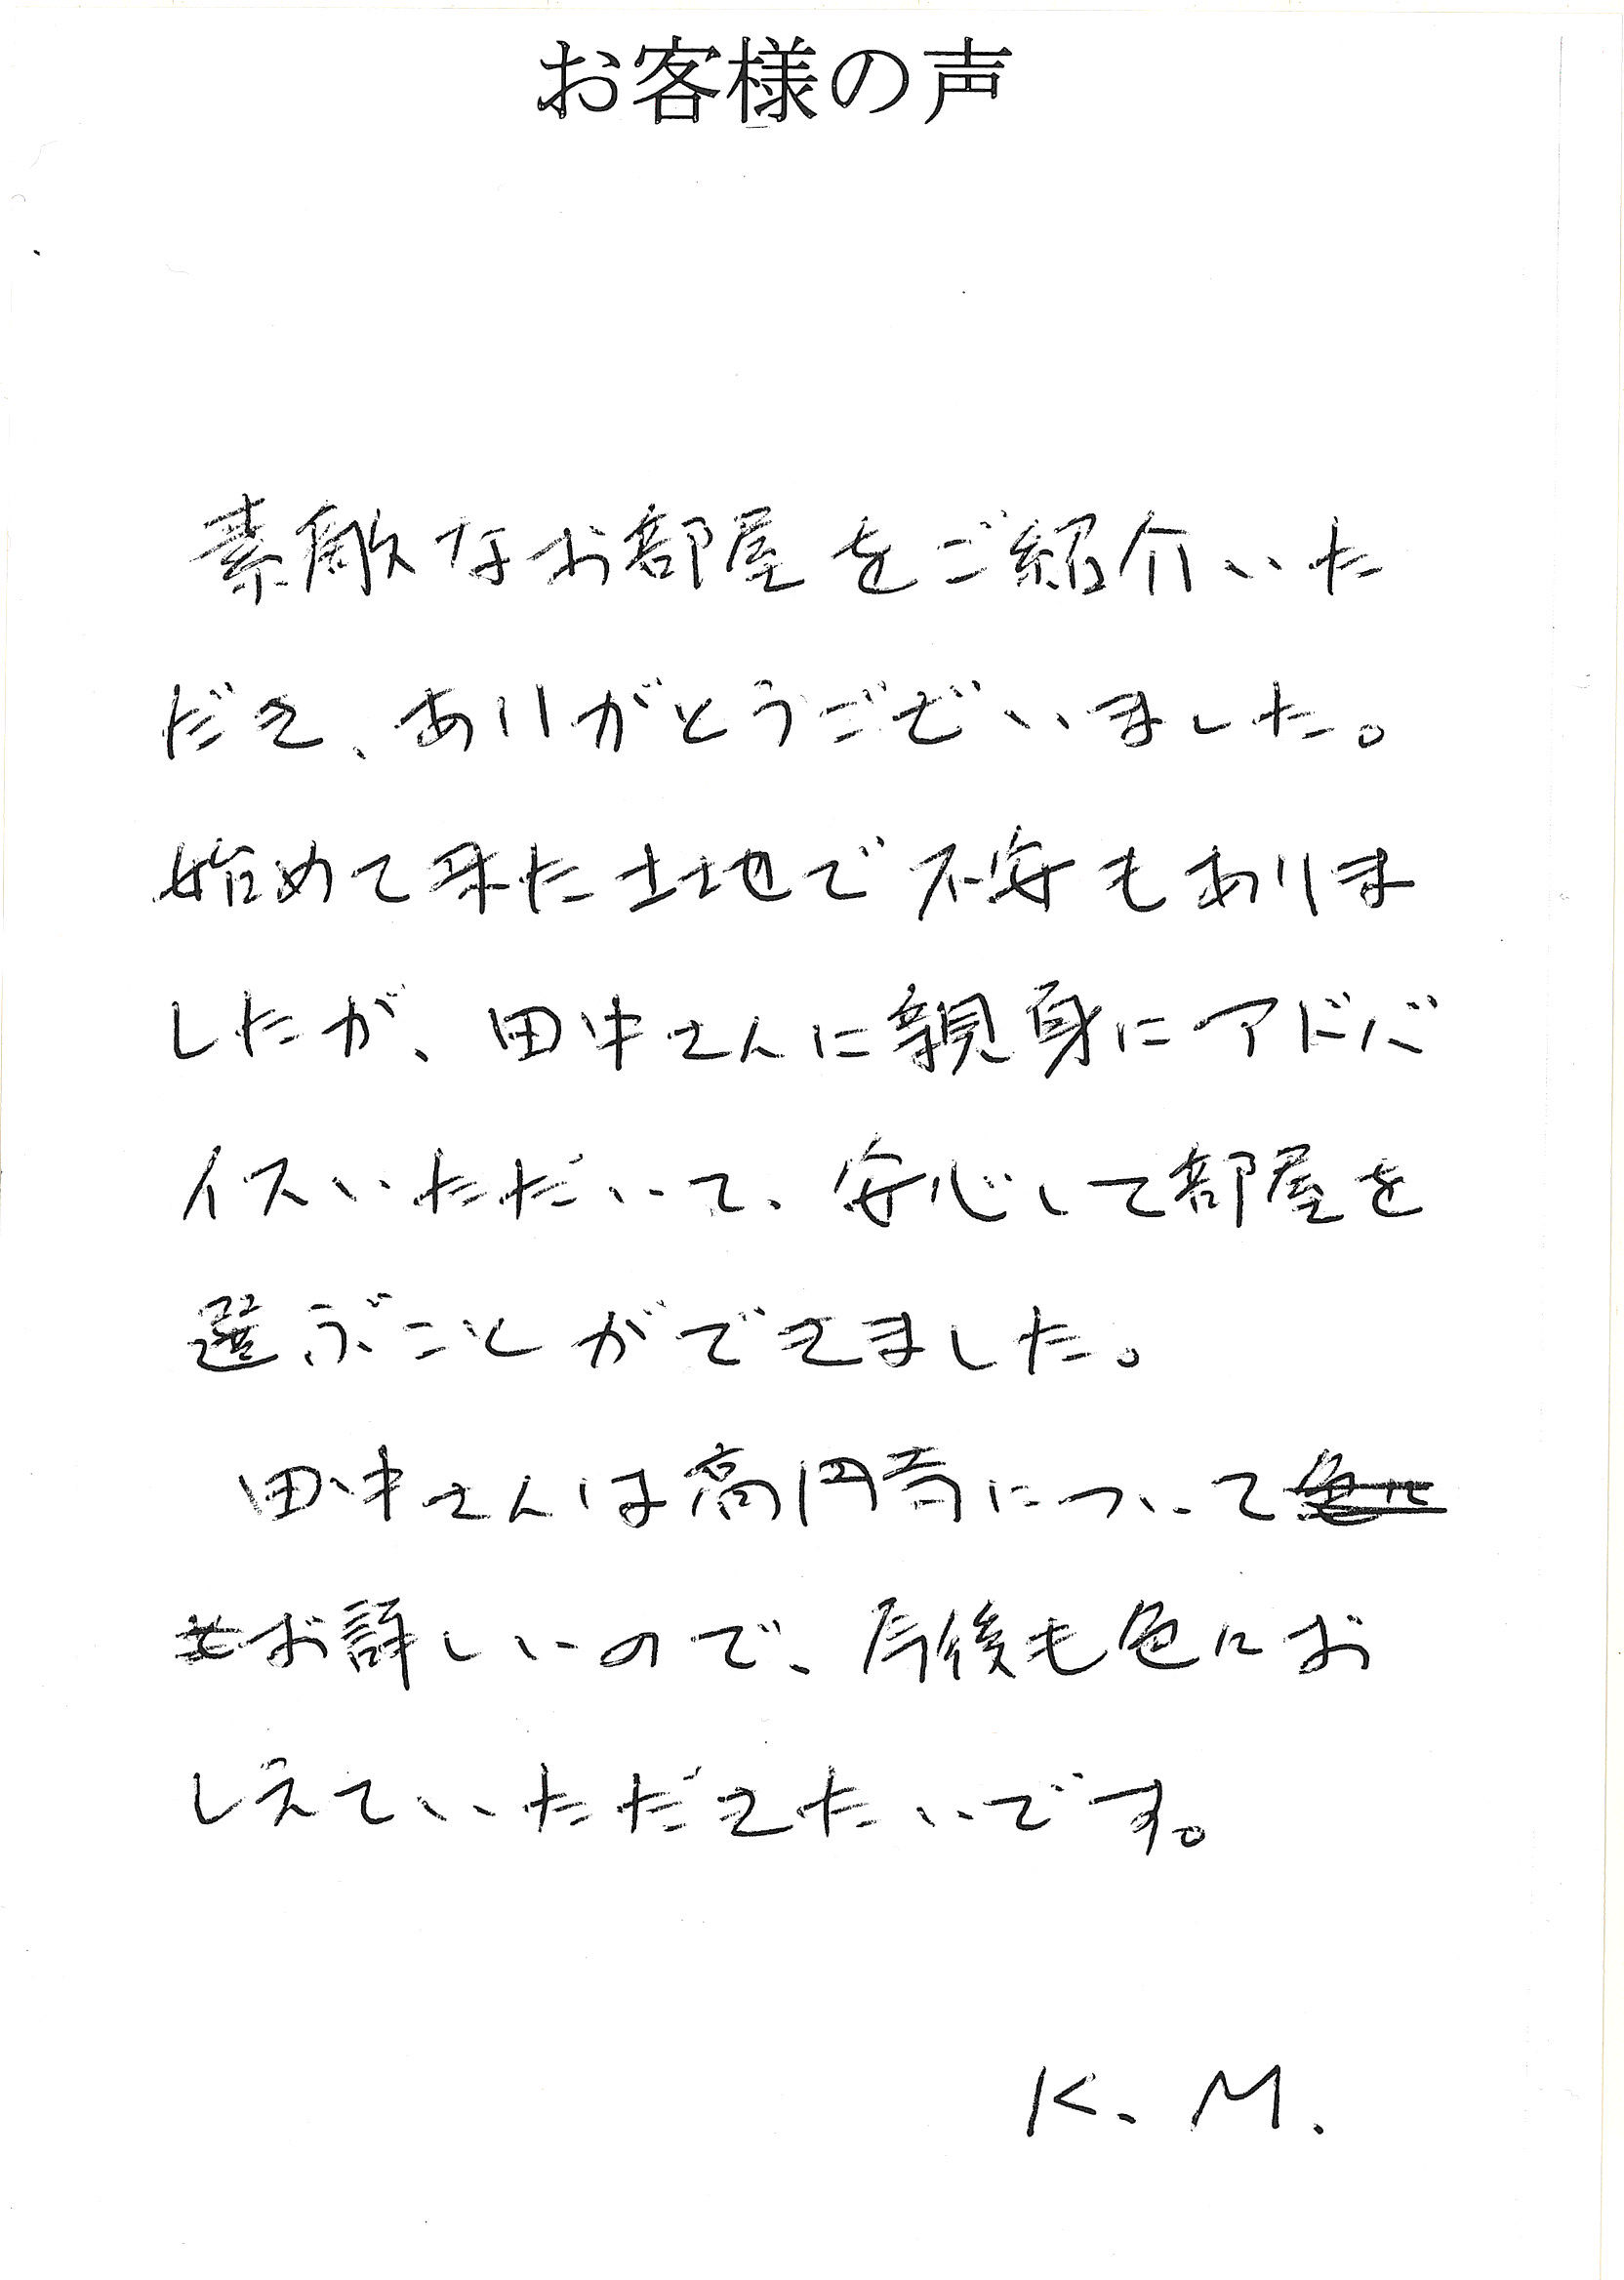 お客様の声
素敵なお部屋をご紹介いた
だき、ありがとうございました。
始めて来た土地で不安もありま
したが、田中さんに親身にアドバ
イスいただいて、安心して部屋を
選ぶことができました。
田中さんは高円寺について
お詳しいので、今後も色々お
しえていただきたいです。
K. M.